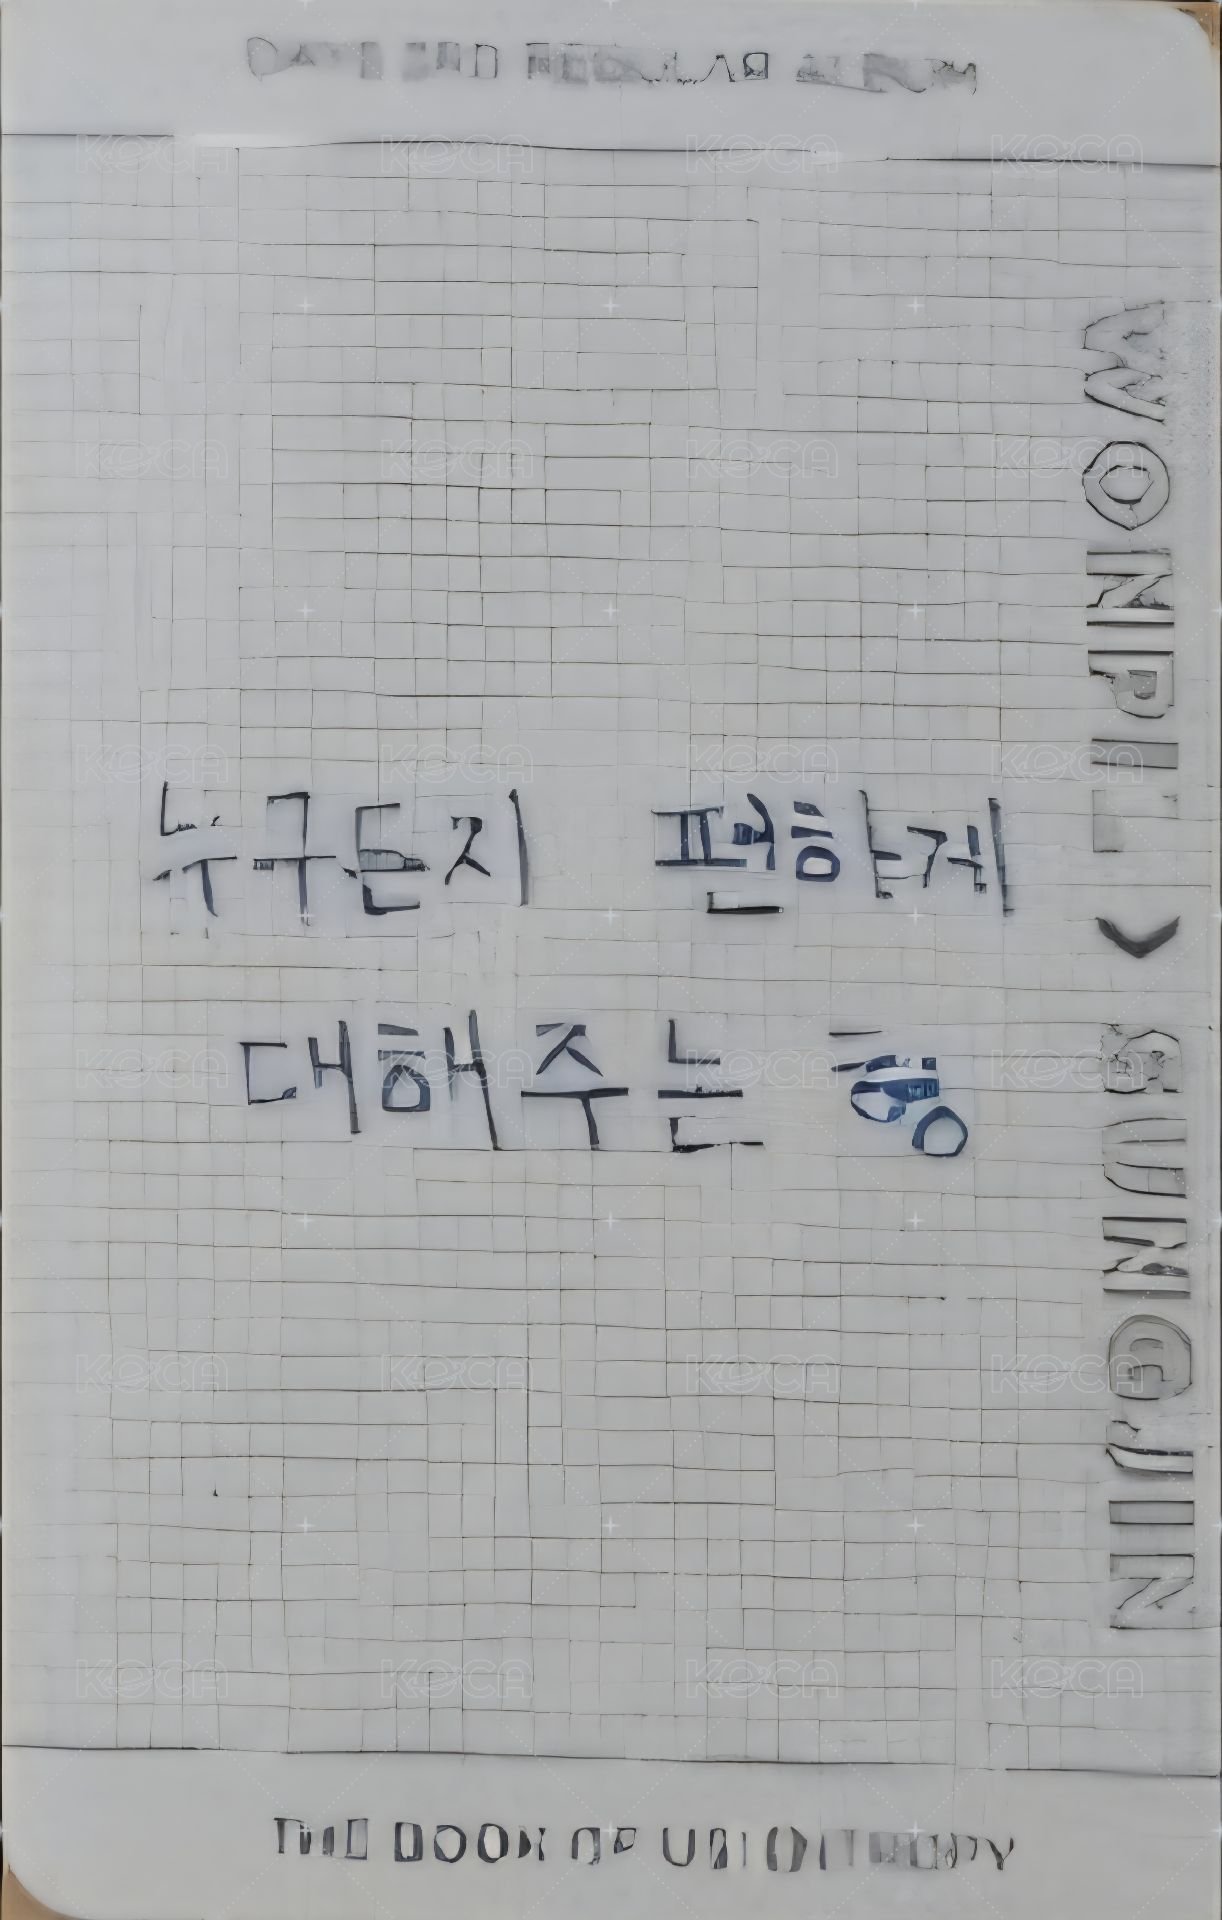 누구든지 편하게
대해주는 형
WONPIL > SUNGJIN
THE BOOK OF US
KOCA